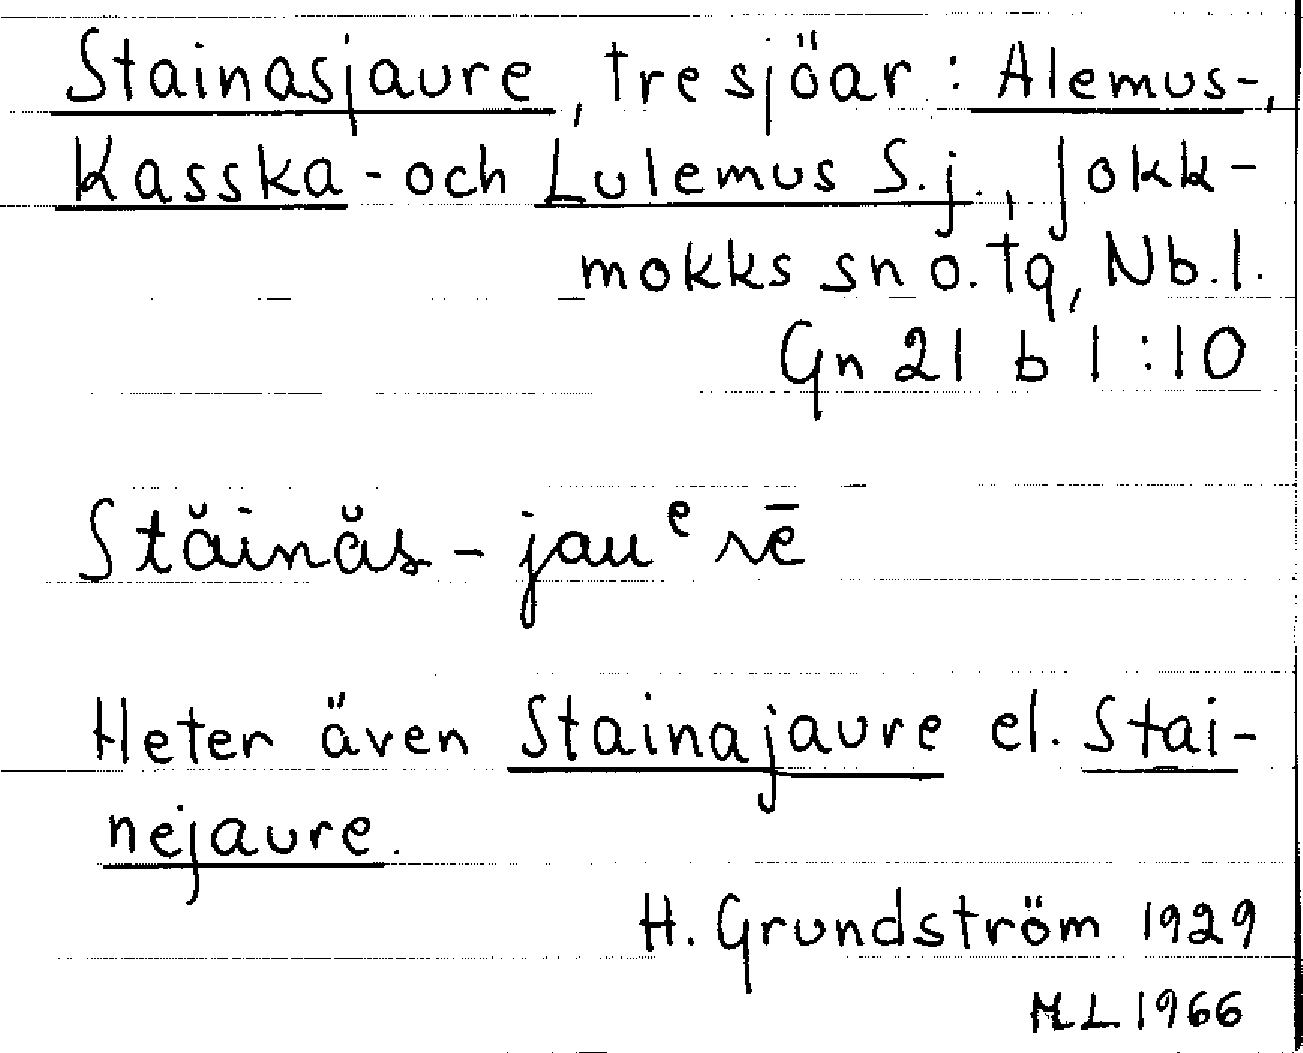 Stainasjaure, tre sjöar: Alemus-,
Kasska- och Lulemus S.j., Jokk-
mokks sn o. tg, Nb.l.
Gn 21 b 1:10
Stăinăs-jauᵉrē
Heter även Stainajaure el. Stai-
nejaure.
H. Grundström 1929
ML 1966